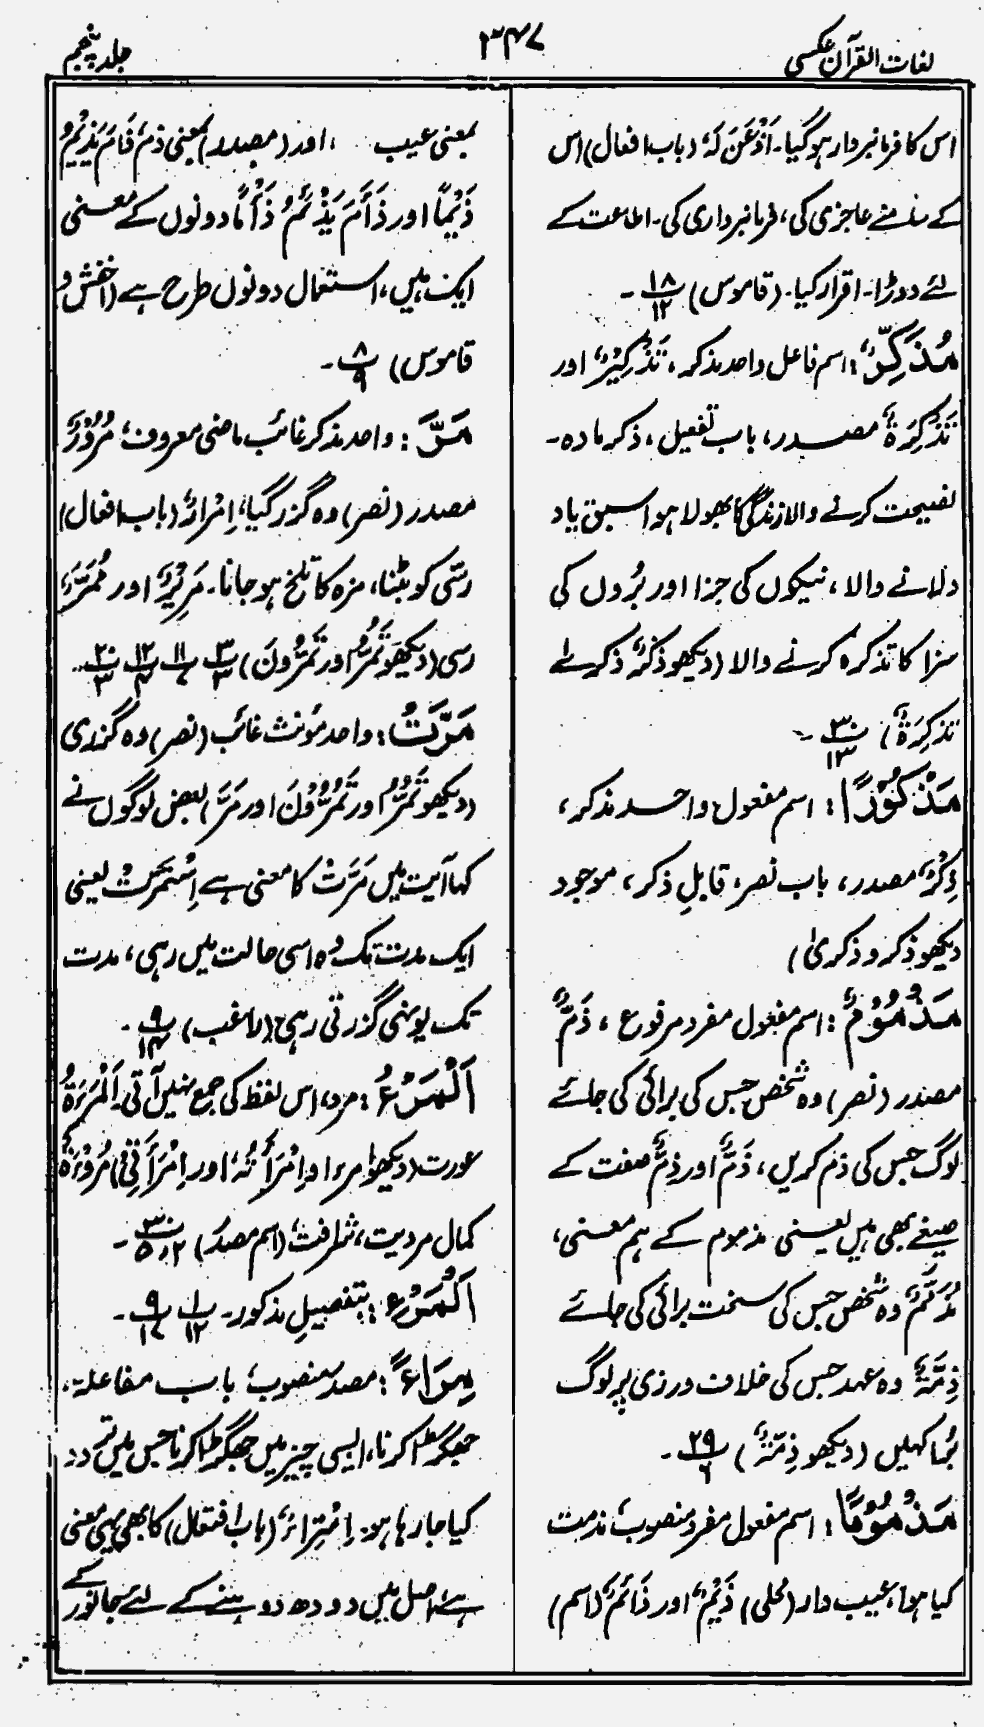 لغات القرآن عکسی
۳۴۷
جلد پنجم
اس کا فرمانبردار ہوگیا۔ اَذْعَنَ لَہٗ (باب افعال) اس
کے سامنے عاجزی کی، فرمانبرداری کی۔ اطاعت کے
لئے دوڑا۔ اقرار کیا۔ (قاموس) ۱۸/۱۲ ۔
مُذَکِّرٌ: اسم فاعل واحد مذکر، تَذْکِیْرٌ اور
تَذْکِرَۃٌ مصدر، باب تفعیل، ذکر مادہ۔
نصیحت کرنے والا زندگی کا بھولا ہوا سبق یاد
دلانے والا، نیکوں کی جزا اور بُروں کی
سزا کا تذکرہ کرنے والا (دیکھو ذکرٌ ذکریٰ
تذکِرَۃٌ) ۳۰/۱۳ ۔
مَذْکُوْرًا: اسم مفعول واحد مذکر،
ذِکْرٌ مصدر، باب نصر، قابلِ ذکر، موجود
دیکھو ذکر و ذکریٰ)
مَذْمُوْمٌ: اسم مفعول مفرد مرفوع، ذَمٌّ
مصدر (نصر) وہ شخص جس کی برائی کی جائے
لوگ جس کی ذم کریں، ذَمٌّ اور ذِمٌّ صفت کے
صیغے بھی ہیں یعنی مذموم کے ہم معنی،
مُذَمَّمٌ وہ شخص جس کی سخت برائی کی جائے
ذِمَّۃٌ وہ عہد جس کی خلاف ورزی پر لوگ
بُرا کہیں (دیکھو ذِمَّۃٌ) ۲۹/۶ ۔
مَذْمُوْمًا: اسم مفعول مفرد منصوب، مذمت
کیا ہوا، عیب دار (محلی) ذَیْمٌ اور ذَائمٌ (اسم)
بمعنی عیب، اور (مصدر) بمعنی ذمّ، ذَامَ یَذِیْمُ
ذَیْمًا اور ذَأَمَ یَذْئَمُ ذَأْمًا دونوں کے معنی
ایک ہیں، استعمال دونوں طرح ہے (اخفش و
قاموس) ۸/۹ ۔
مَرَّ: واحد مذکر غائب ماضی معروف، مُرُوْرٌ
مصدر (نصر) وہ گزر گیا، اِمْرَارٌ (باب افعال)
رسّی کو بٹنا، مزہ کا تلخ ہو جانا۔ مَرِیْرٌ اور مُمَرٌّ
رسی (دیکھو تَمُرُّ اور تَمُرُّوْنَ) ۳/۳ ۱۱/۷ ۱۲/۳ ۲۰/۳ ۔
مَرَّتْ: واحد مؤنث غائب (نصر) وہ گزری
(دیکھو تَمُرُّ اور تَمُرُّوْنَ اور مَرَّ) بعض لوگوں نے
کہا آیت میں مَرَّتْ کا معنی ہے اِسْتَمَرَّتْ یعنی
ایک مدت تک وہ اسی حالت میں رہی، مدت
تک یونہی گزرتی رہی (راغب) ۹/۱۴ ۔
اَلْمَرْءُ: مرد، اس لفظ کی جمع نہیں آتی۔ اَلْمَرْءَۃُ
عورت (دیکھو امرءا و اِمْرَأَتُہٗ اور اِمْرَأَتِیْ) مُرُوْءَۃٌ
کمال مردیت، شرافت (اسم مصدر) ۳۰/۲،۵ ۔
اَلْمَرْءِ: بتفصیلِ مذکور۔ ۱/۱۲ ۹/۱۷ ۔
مِرَاءً: مصدر منصوب، باب مفاعلۃ،
جھگڑا کرنا، ایسی چیز میں جھگڑا کرنا جس میں تردد
کیا جا رہا ہو۔ اِمْتِرَاءٌ (باب افتعال) کا بھی یہی معنی
ہے، اصل میں دودھ دوہنے کے لئے جانور کے